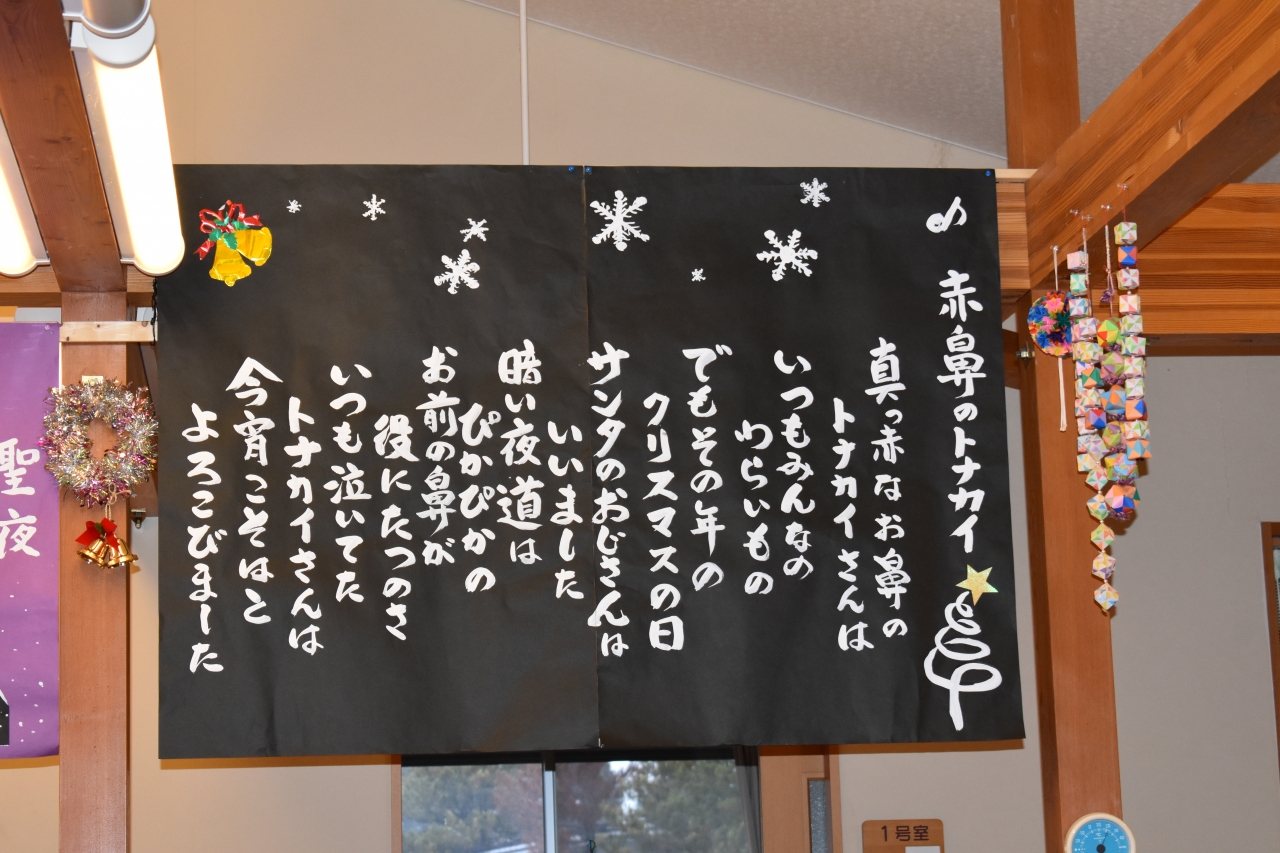 赤鼻のトナカイ
真っ赤なお鼻の
トナカイさんは
いつもみんなの
わらいもの
でもその年の
クリスマスの日
サンタのおじさんは
いいました
暗い夜道は
ぴかぴかの
お前の鼻が
役にたつのさ
いつも泣いてた
トナカイさんは
今宵こそはと
よろこびました
聖夜
1号室